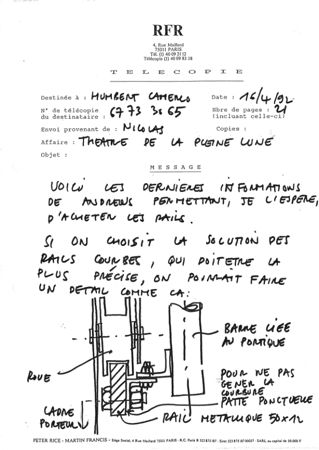 RFR
4, Rue Maillard
75011 PARIS
TÉLÉCOPIE
Destinée à : HUMBERT CAMERLO
Date : 16/4/92
N° de télécopie
du destinataire : 67 73 30 65
Nbre de pages : 2
(incluant celle-ci)
Envoi provenant de : NICOLAS
Copies :
Affaire : THEATRE DE LA PLEINE LUNE
Objet :
MESSAGE
VOICI LES DERNIERES INFORMATIONS
DE ANDREWS PERMETTANT, JE L'ESPERE,
D'ACHETER LES RAILS.
SI ON CHOISIT LA SOLUTION DES
RAILS COURBES, QUI DOIT ETRE LA
PLUS PRÉCISE, ON POURRAIT FAIRE
UN DETAIL COMME CA:
BARRE LIÉE
AU PORTIQUE
ROUE
POUR NE PAS
GENER LA
COURBURE
PATTE PONCTUELLE
CADRE
PORTEUR
RAIL METALLIQUE 50x12
PETER RICE - MARTIN FRANCIS - Siège Social, 4 Rue Maillard 75011 PARIS